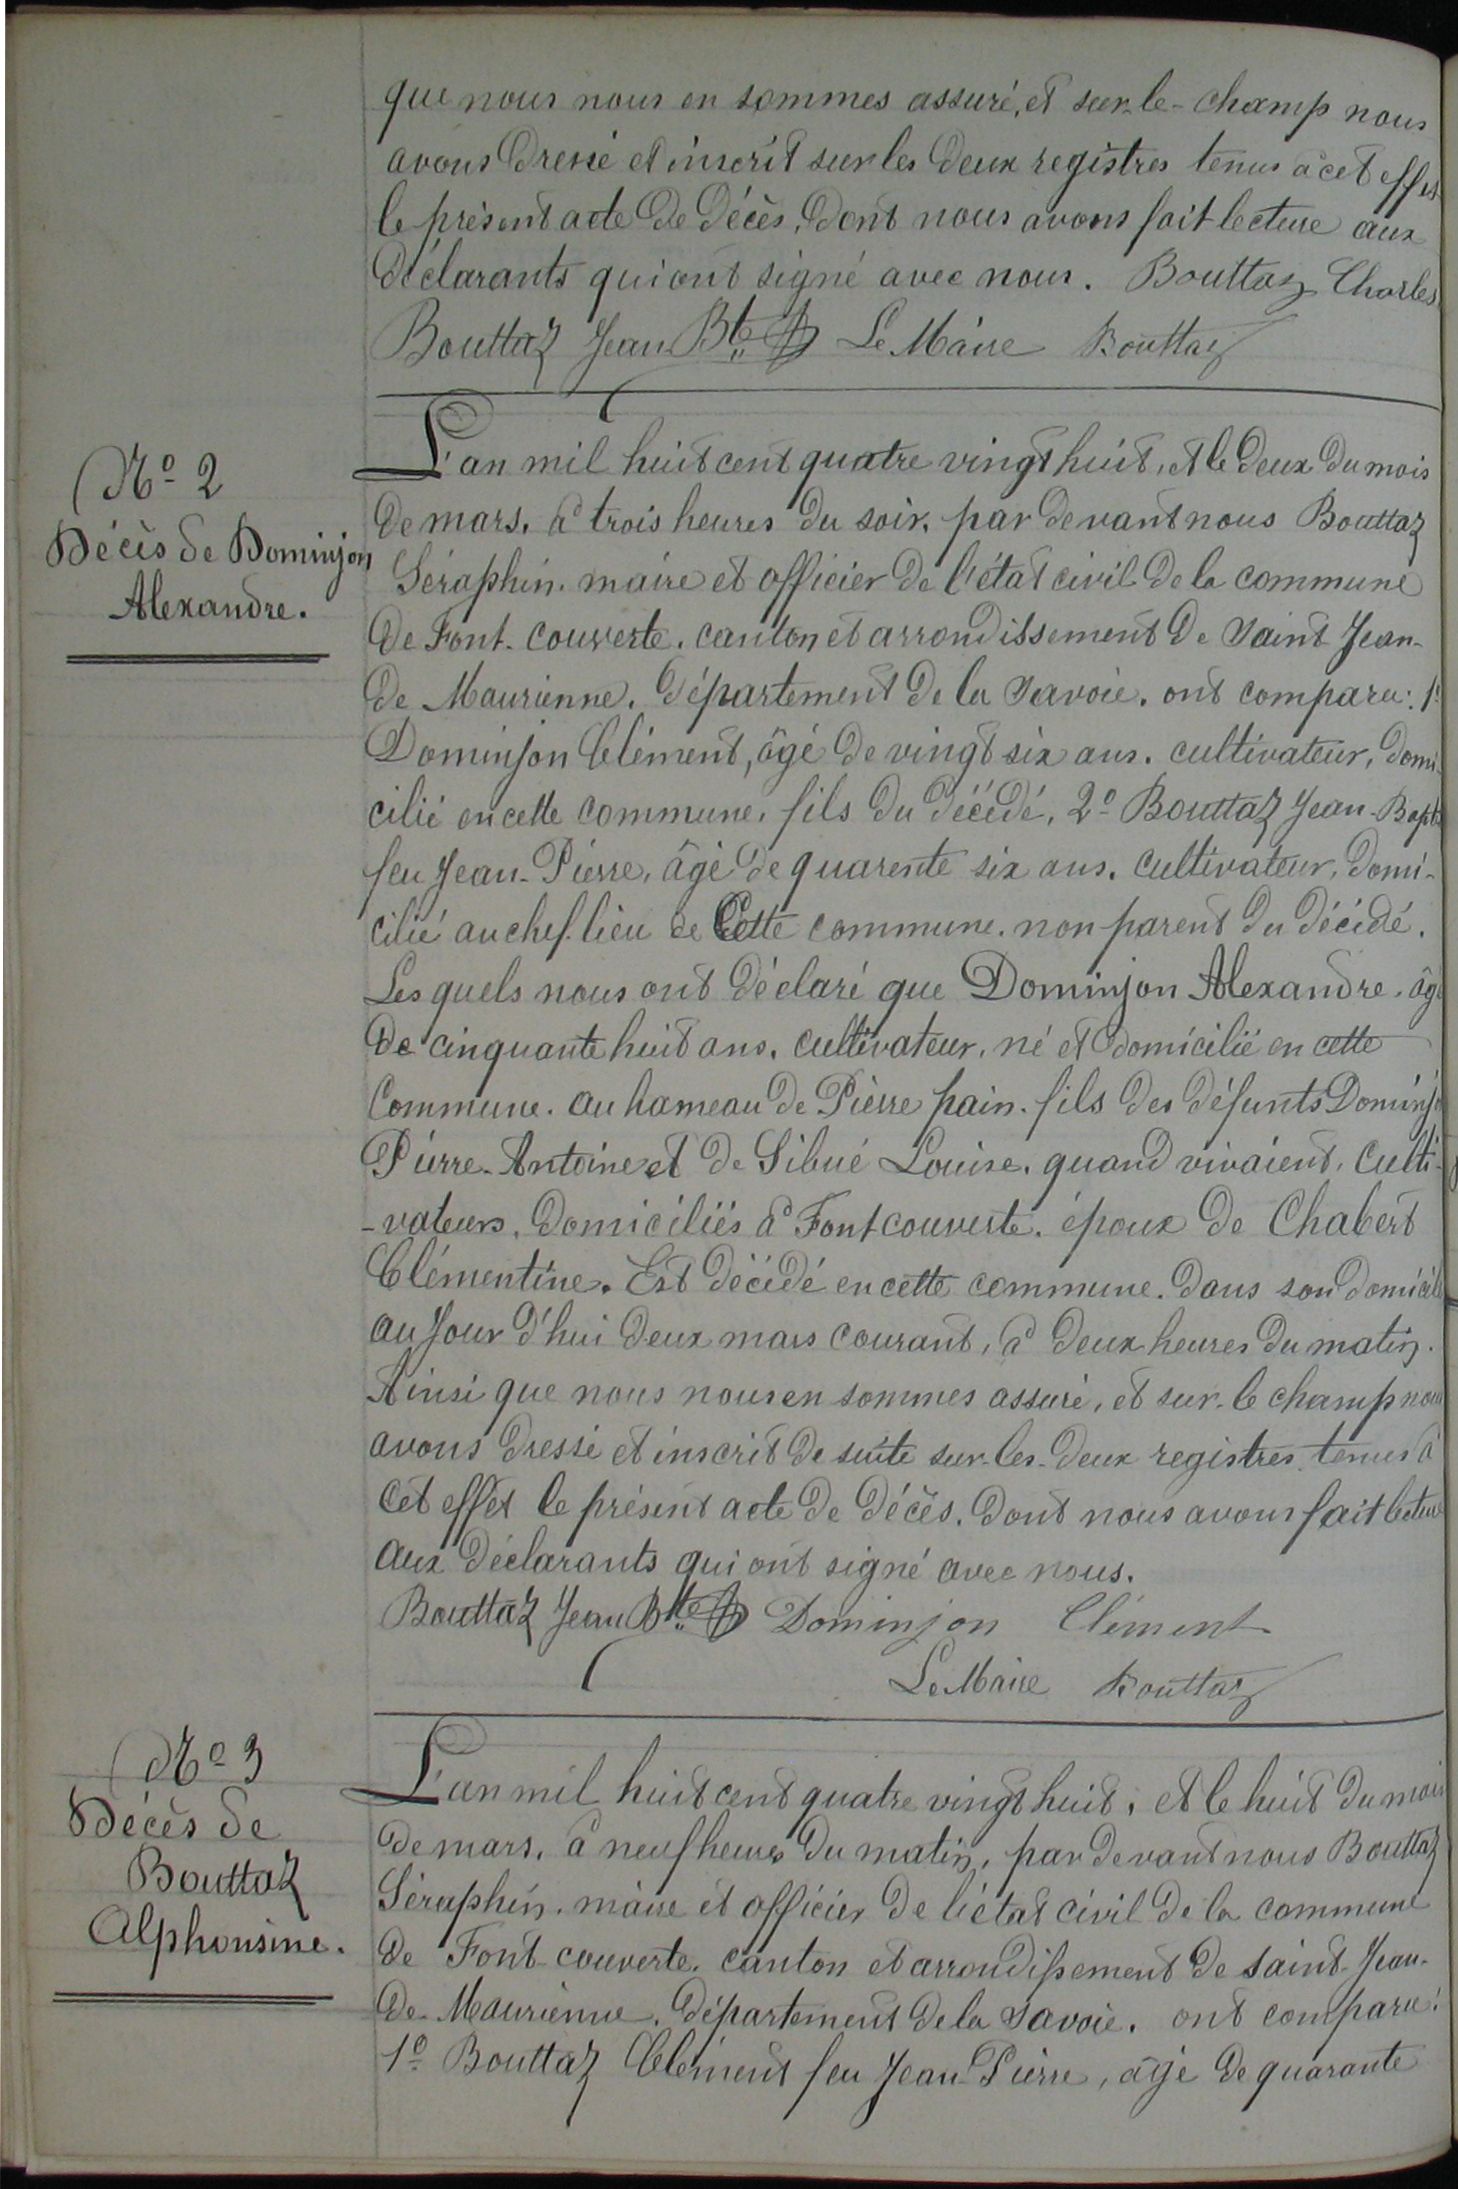 que nous nous en sommes assuré, et sur-le-champ nous
avons dressé et inscrit sur les deux registres tenus à cet effet
le présent acte de décès, dont nous avons fait lecture aux
déclarants qui ont signé avec nous. Bouttaz Charles
Bouttaz Jean Bte Le Maire Bouttaz
N° 2
Décès de Dominjon
Alexandre.
L'an mil huit cent quatre vingt huit, et le deux du mois
de mars, à trois heures du soir, par devant nous Bouttaz
Séraphin, maire et officier de l'état civil de la commune
de Font-couverte, canton et arrondissement de Saint Jean-
de Maurienne, département de la Savoie, ont comparu: 1°
Dominjon Clément, âgé de vingt six ans, cultivateur, domi-
cilié en cette commune, fils du décédé, 2° Bouttaz Jean-Bapte
feu Jean-Pierre, âgé de quarente six ans, cultivateur, domi-
cilié au chef-lieu de Cette commune, non parent du décédé.
Les quels nous ont déclaré que Dominjon Alexandre, âgé
de cinquante huit ans, cultivateur, né et domicilié en cette
Commune, au hameau de Pierre pain, fils des défunts Dominjon
Pierre-Antoine et de Sibué Louise, quand vivaient, culti-
-vateurs, domiciliés à Fontcouverte, époux de Chabert
Clémentine. Est décédé en cette commune, dans son domicile
au Jour d'hui deux mars courant, à deux heures du matin.
Ainsi que nous nous en sommes assuré, et sur-le champ nous
avons dressé et inscrit de suite sur-les-deux registres tenus à
cet effet le présent acte de décès, dont nous avons fait lecture
aux déclarants qui ont signé avec nous.
Bouttaz Jean Bte Dominjon Clément
Le Maire Bouttaz
N° 3
Décès de
Bouttaz
Alphonsine.
L'an mil huit cent quatre vingt huit, et le huit du mois
de mars, à neuf heures du matin, par devant nous Bouttaz
Séraphin, maire et officier de l'état civil de la commune
de Font-couverte, canton et arrondissement de Saint-Jean-
de-Maurienne, département de la Savoie, ont comparu:
1° Bouttaz Clément feu Jean Pierre, âgé de quarante